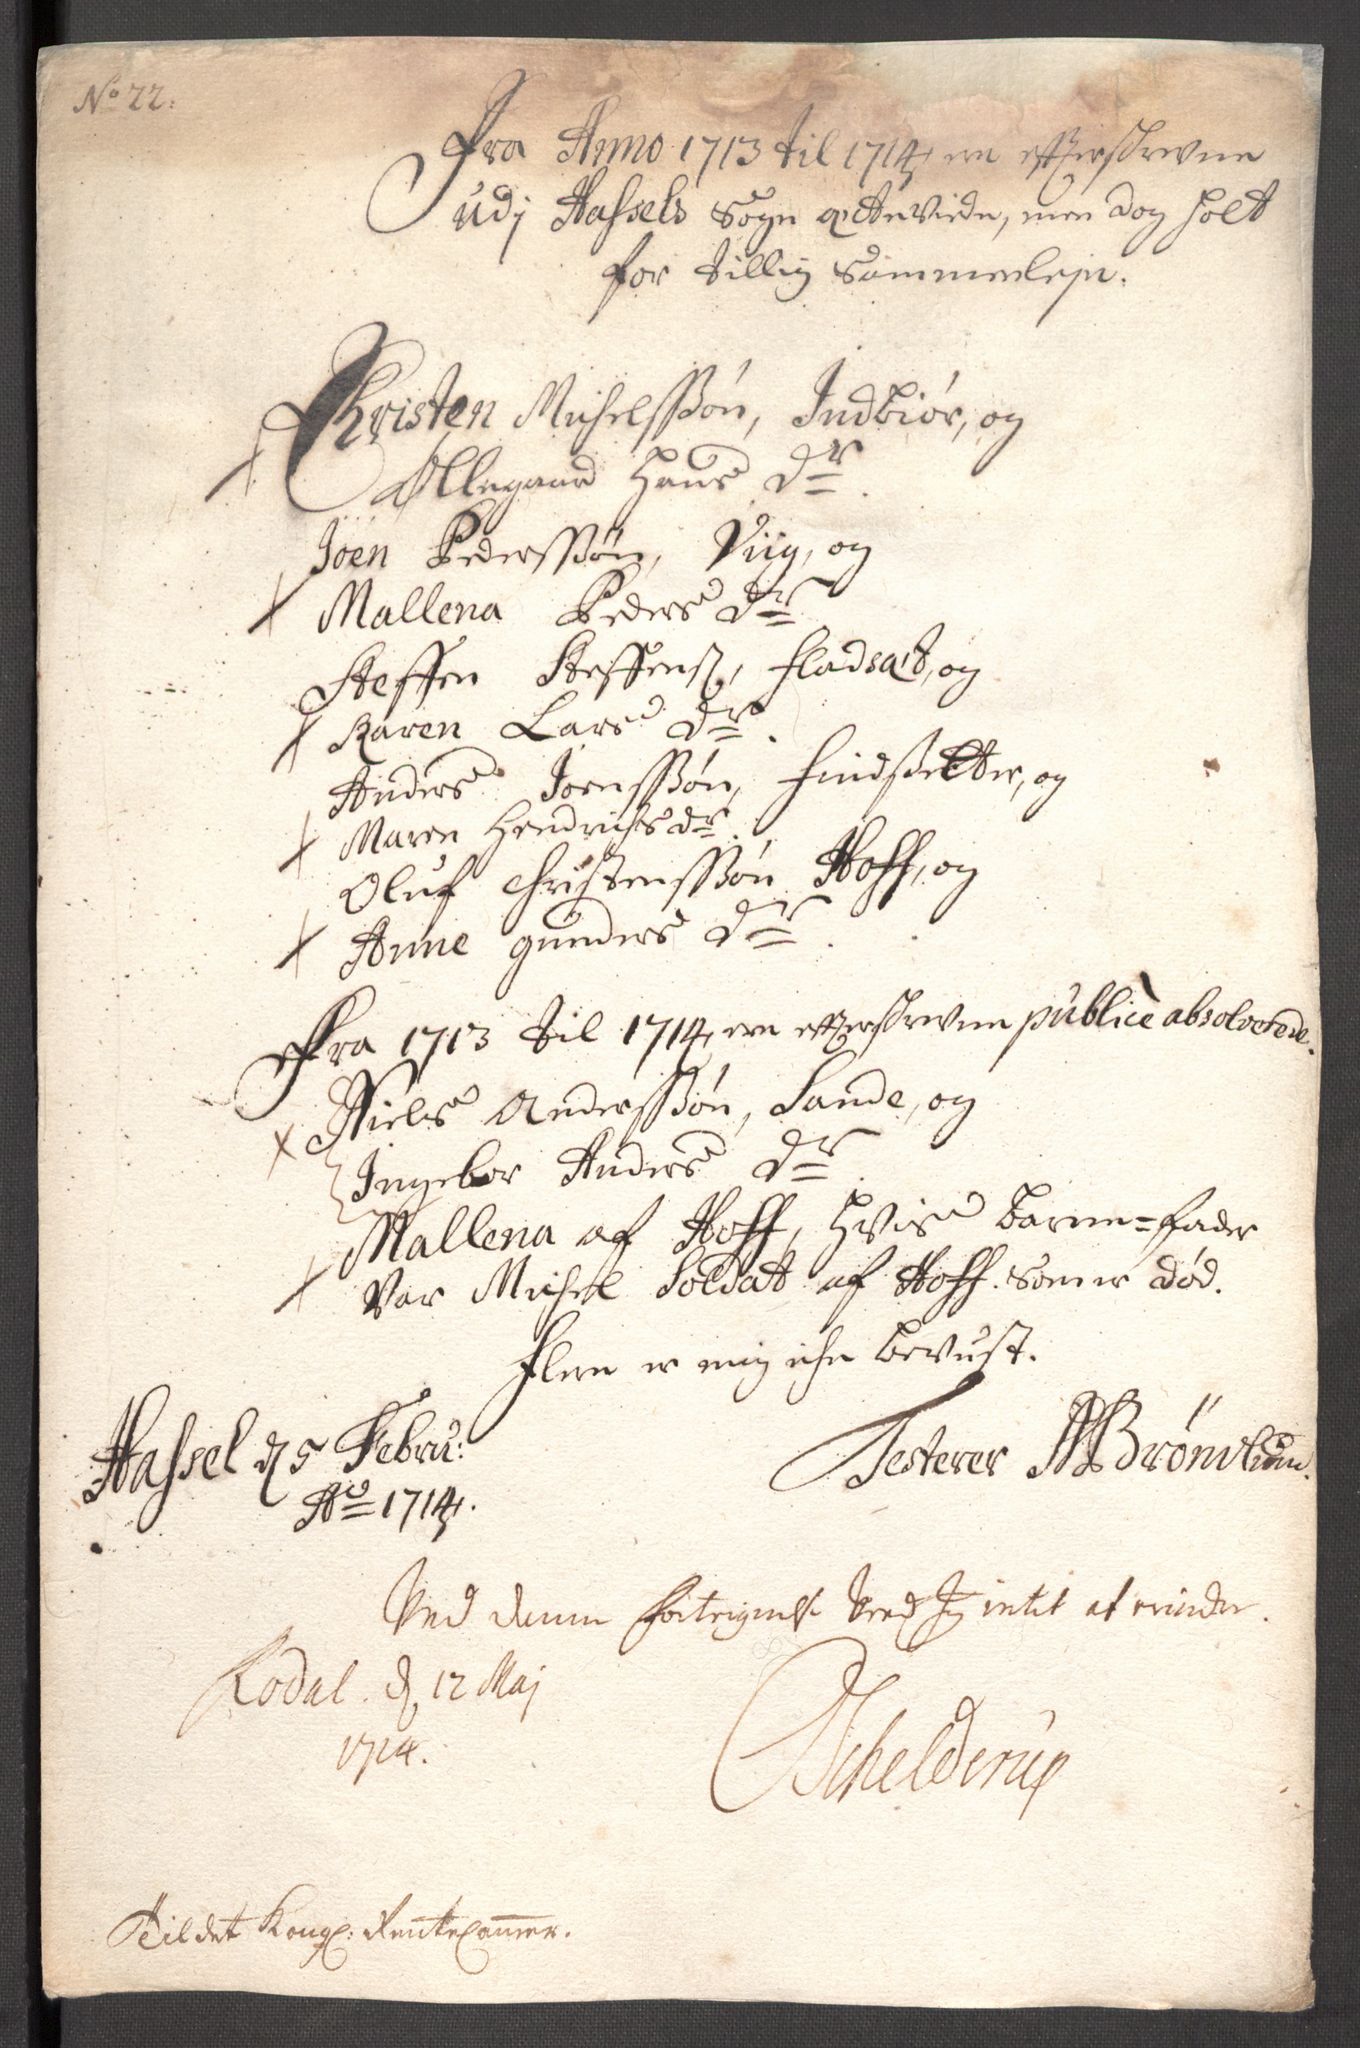 No 22:
Fra Anno 1713 til 1714, ere efterskrevne
udj Hassels Sogn ecteviede, men dog holt
for tillig Sammenleje.
Christen Michelssøn, Indbiør, og
Ollegaard Hans Dr.
Joen Pederssøn, Viig, og
Mallena Peders Dr
Steffen Steffens, Fladsæt, og
Karen Lars Dr.
Anders Joenssøn, Findsetter, og
Maren Hendrichs dr.
Oluf Christenssøn Hoff, og
Anne Gunders Dr.
Fra 1713 til 1714, ere efterskrevne publicè absolverede.
Niels Anderssøn, Sande, og
Ingebor Anders Dr.
Mallena af Hoff, hvis barne-fader
var Michel Soldat af Hoff. som er død.
Flere er mig iche bevust.
Hassel d 5 Febru:
Ao 1714.
Testerer Brønlund.
Ved denne fortegnelse veed Jeg intet at erindre.
Rodal. d. 12 Maj
1714.
Schelderup
Til det Kongl: Rente Camer.